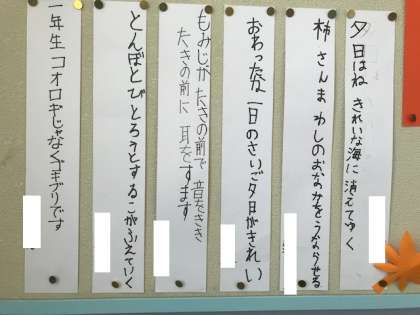 夕日はね きれいな海に 消えてゆく
柿 さんま わしのおなかをうならせる
おわったな 一日のさいご夕日がきれい
もみじが たきの前で 音をきき
たきの前に 耳をすます
とんぼとび とろうとするこがふえていく
一年生 コオロギじゃなくゴキブリです